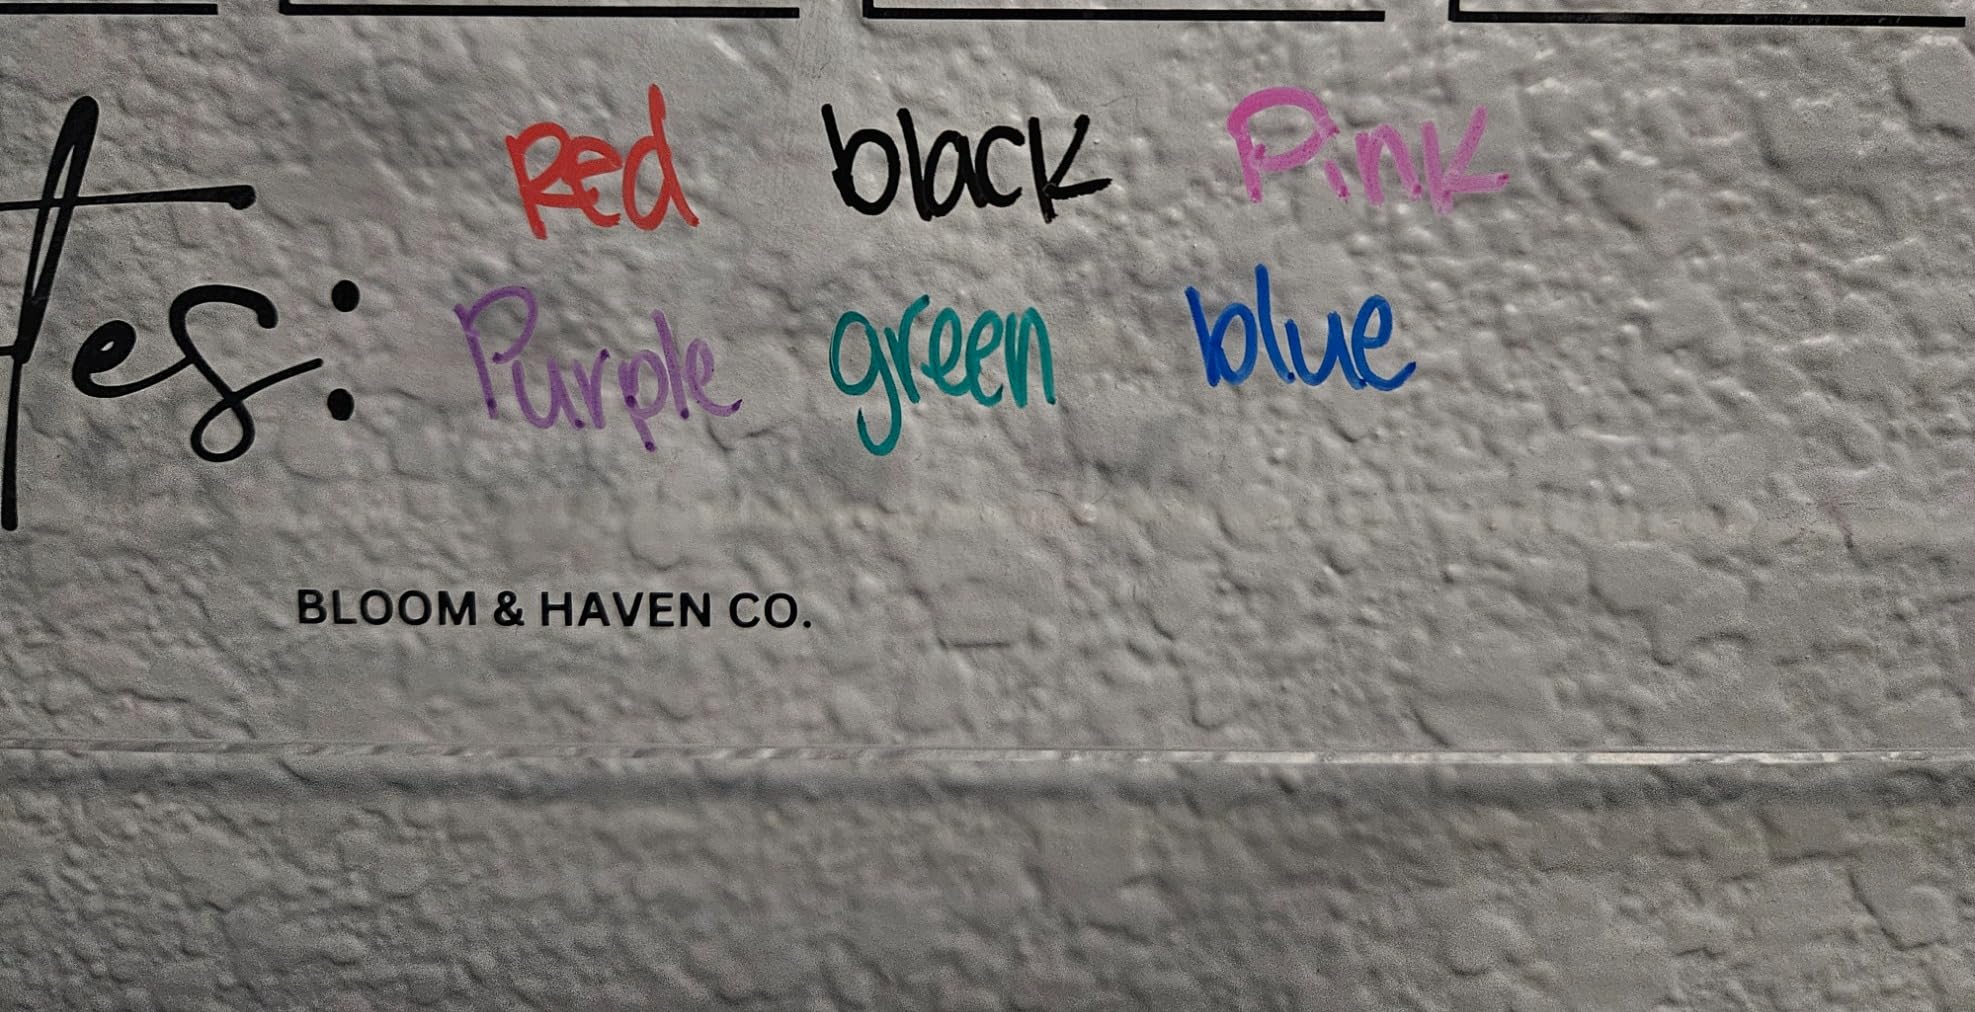 Red black Pink
tes: Purple green blue
BLOOM & HAVEN CO.